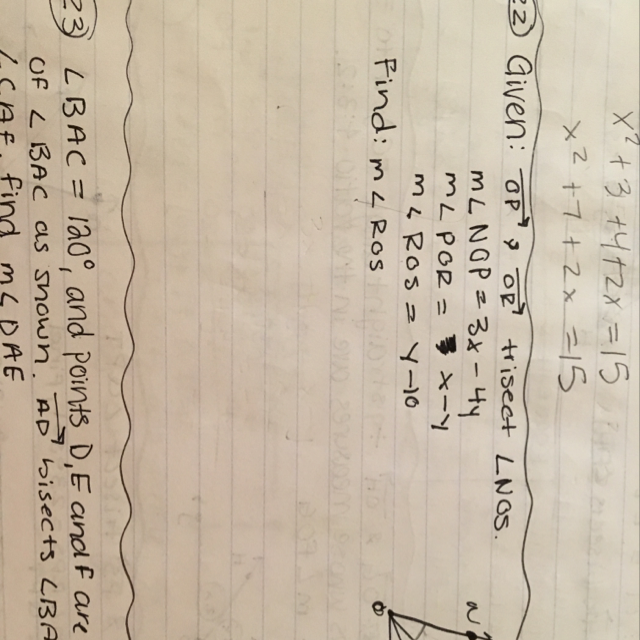 x² + 3 + 4 + 2x = 15
x² + 7 + 2x = 15
22) Given: OP→ , OR→ trisect ∠NOS.
m∠NOP = 3x - 4y
m∠POR = x - y
m∠ROS = y - 10
Find: m∠ROS
N
O
23) ∠BAC = 120°, and points D, E and F are
OF ∠BAC as shown. AD→ bisects ∠BA
∠CAF. Find m∠DAE